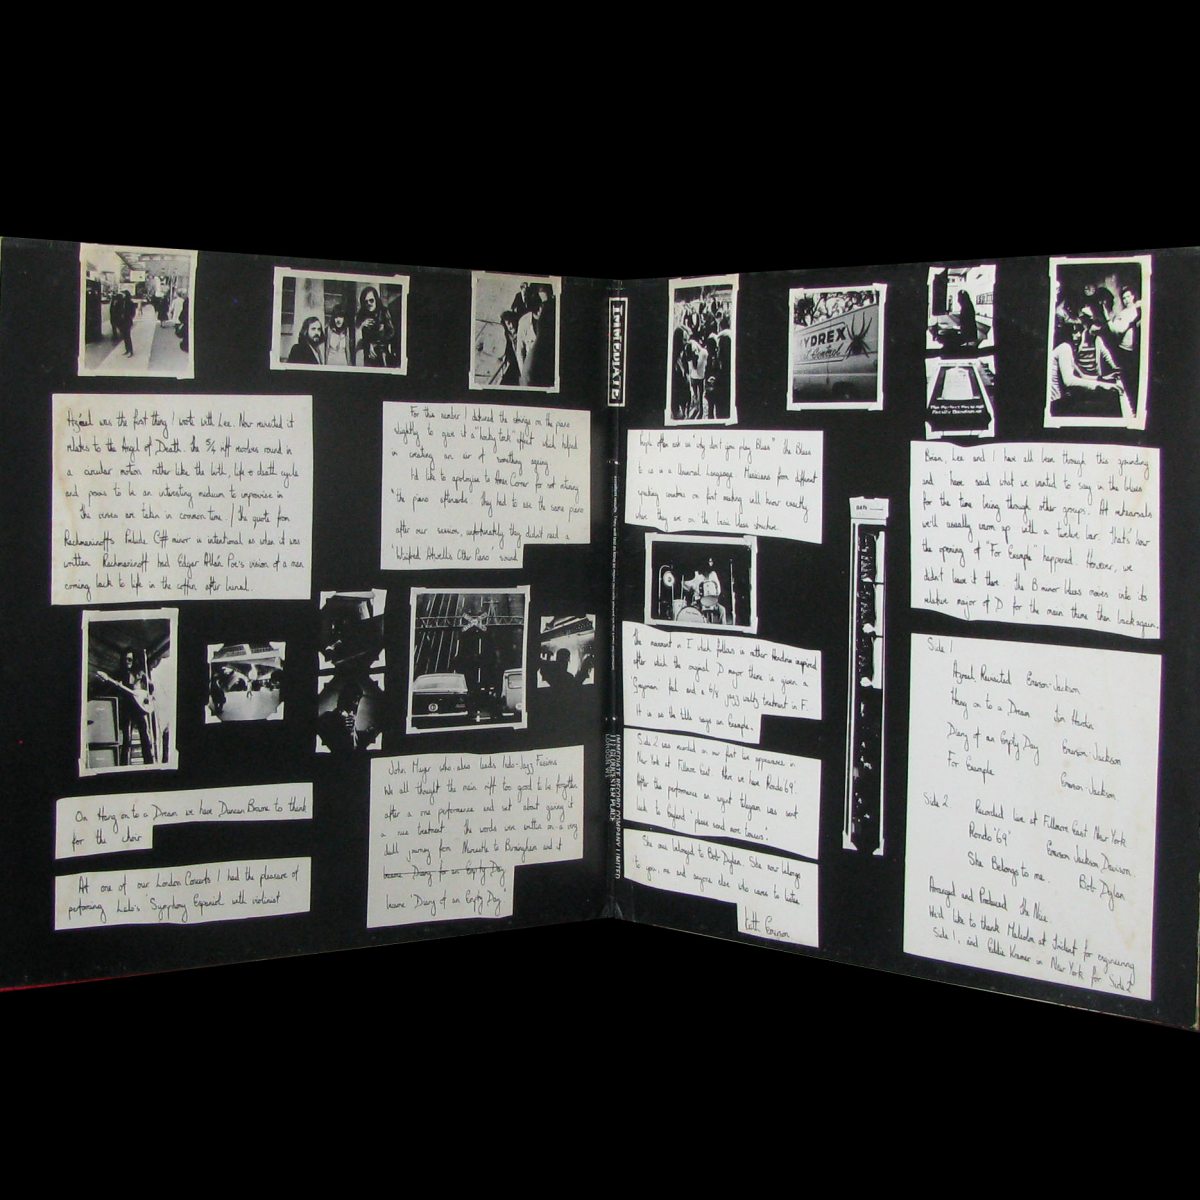 Azrael was the first thing I wrote with Lee. Now revisited it
relates to the Angel of Death. The 5/4 riff revolves round in
a circular motion rather like the birth, life & death cycle
and proves to be an interesting medium to improvise in
The verses are taken in common time. The quote from
Rachmaninoff's Prelude C# minor is intentional as when it was
written Rachmaninoff had Edgar Allan Poe's vision of a man
coming back to life in the coffin after burial.
On Hang on to a Dream we have Duncan Browne to thank
for the choir
At one of our London Concerts I had the pleasure of
performing Lalo's Symphony Espaniol with violinist
For this number I detuned the strings on the piano
slightly to give it a "honky tonk" effect which helped
in creating an air of something ageing
I'd like to apologise to Corner for not retuning
the piano afterwards. They had to use the same piano
after our session, unfortunately they didn't need a
'Winifred Atwell's Other Piano' sound.
John Mayer who also leads Indo-Jazz Fusions
We all thought the main riff too good to be forgotten
after a one performance and set about giving it
a new treatment. The words were written on a very
dull journey from Newcastle to Birmingham and it
became Diary for an Empty Day
became 'Diary of an Empty Day'
IMMEDIATE
IMMEDIATE RECORD COMPANY LIMITED
111 GLOUCESTER PLACE
LONDON W1
People often ask us "why don't you play Blues" The Blues
to us is a Universal Language. Musicians from different
speaking countries on first meeting will know exactly
where they are on the basic blues structure.
HYDREX
The movement in E which follows is rather Hendrix inspired
after which the original D major theme is given a
'Grayman' feel and a 6/8 jazz waltz treatment in F.
It is as the title says an Example.
Side 2 was recorded on our first live appearance in
New York at Fillmore East. Here we have Rondo '69'
After the performance an urgent telegram was sent
back to England 'please send more trousers'.
She once belonged to Bob Dylan. She now belongs
to you, me and anyone else who cares to listen
Keith Emerson
Brian, Lee and I have all been through this grounding
and have said what we wanted to say in the blues
for the time being through other groups. At rehearsals
we'll usually warm up with a twelve bar. That's how
the opening of "For Example" happened. However, we
didn't leave it there. The B minor blues moves into its
relative major of D for the main theme then back again.
Side 1
Azrael Revisited Emerson-Jackson
Hang on to a Dream Tim Hardin
Diary of an Empty Day Emerson-Jackson
For Example Emerson Jackson
Side 2 Recorded live at Fillmore East New York
Rondo '69' Emerson Jackson Davison
She Belongs to me Bob Dylan
Arranged and Produced The Nice
We'd like to thank Malcolm at Trident for engineering
Side 1, and Eddie Kramer in New York for Side 2